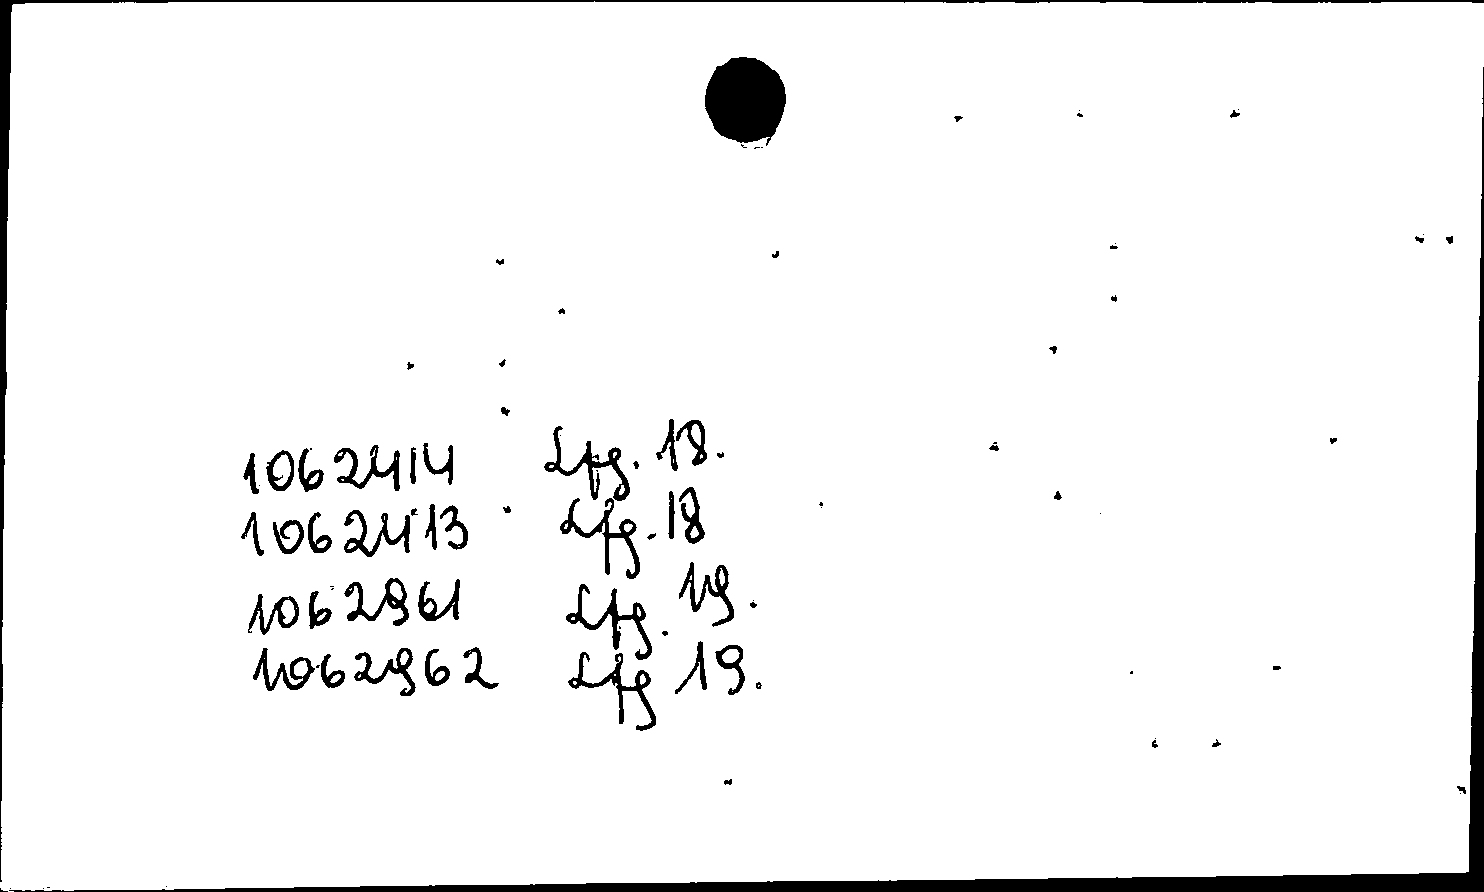 1062414 Lfg. 18.
1062413 Lfg. 18
1062961 Lfg. 19.
1062962 Lfg 19.